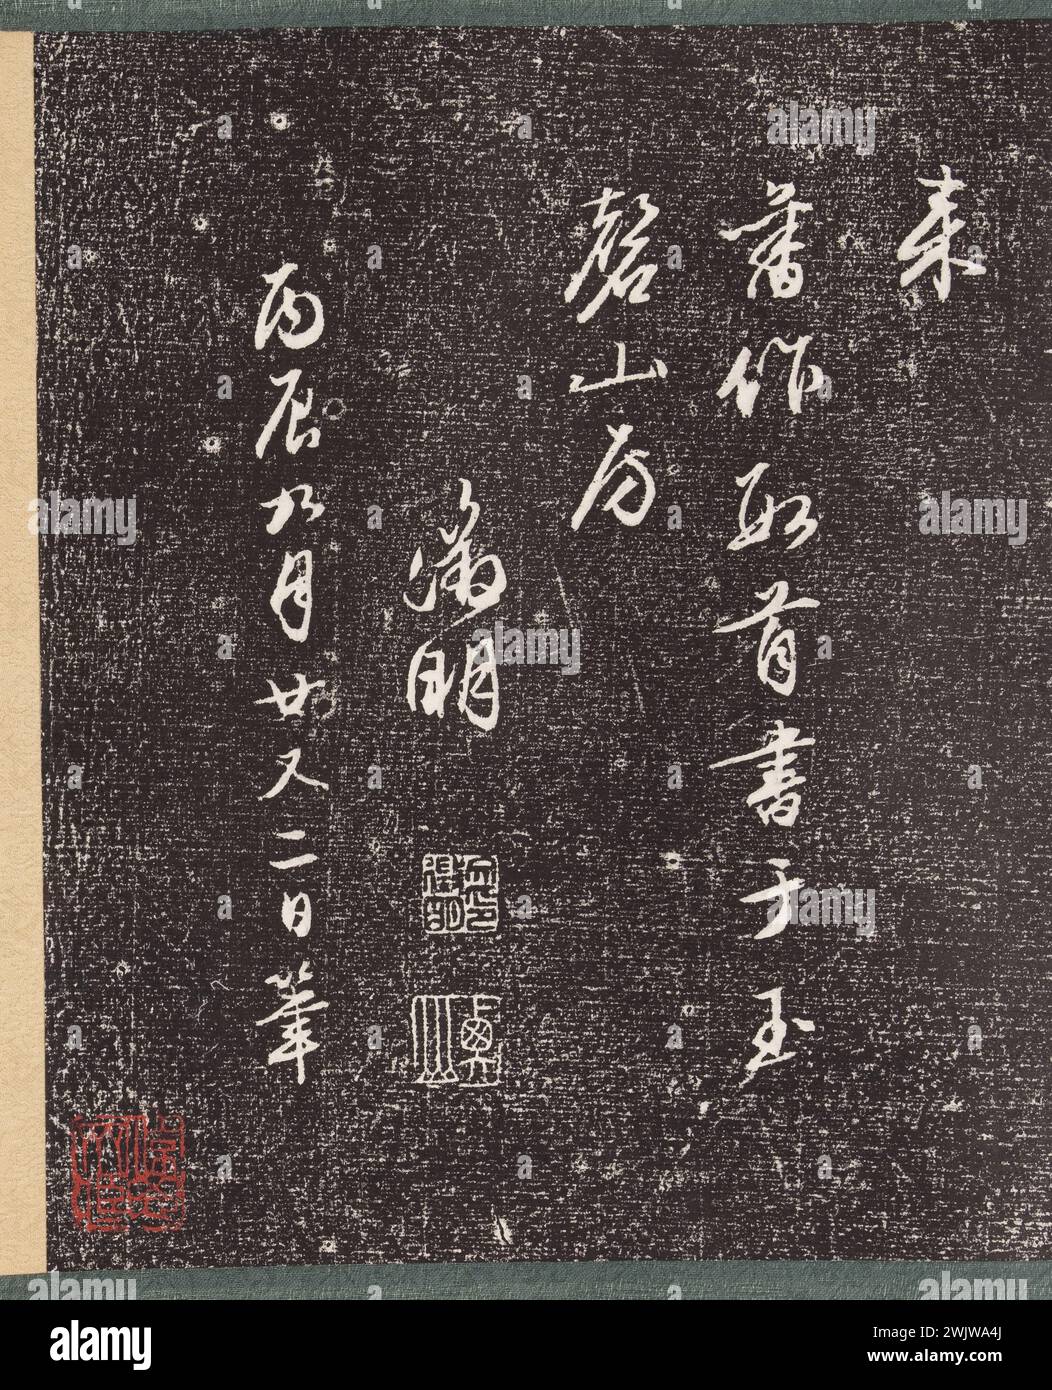 来
旧作数首书于玉
磬山房
徵明
丙辰九月廿又二日笔
alamy
Image ID: 2WJWA4J
www.alamy.com